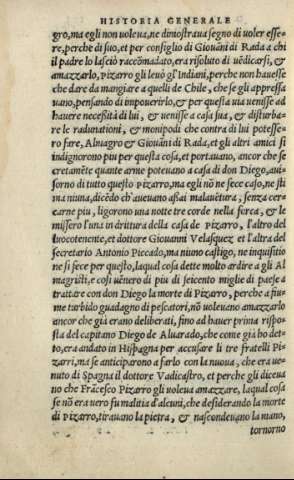 HISTORIA GENERALE
gro, ma egli non voleva, ne dimostrava segno di voler esse-
re, perche di suo, et per consiglio di Giovãni di Rada a chi
il padre lo lasciò raccõmãdato, era risoluto di vẽdicarsi, &
amazzarlo, Pizarro gli levò gl'Indiani, perche non havesse
che dare da mangiare a quelli de Chile, che se gli appressa
vano, pensando di impoverirlo, & per questa via venisse ad
havere necessità di lui, & venisse a casa sua, & disturba-
re le radunationi, & monipodi che contra di lui potesse-
ro fare, Almagro & Giovãni di Rada, et gli altri amici si
indignorono piu per questa cosa, et portavano, ancor che se
cretamẽte quante arme potevano a casa di don Diego, avi-
sorno di tutto questo Pizarro, ma egli nõ ne fece caso, ne sti
ma niuna, dicẽdo ch'avevano assai malavẽtura, senza cer-
carne piu, ligorono una notte tre corde nella forca, & le
missero l'una in drittura della casa de Pizarro, l'altro del
luocotenente, et dottore Giovanni Velasquez et l'altra del
secretario Antonio Piccado, ma niuno castigo, ne inquisitio
ne si fece per questo, laqual cosa dette molto ardire a gli Al
magristi, e cosi vẽnero di piu di seicento miglie di paese a
trattare con don Diego la morte di Pizarro, perche a fiu-
me turbido guadagno di pescatori, nõ volevano amazzarlo
ancor che già erano deliberati, fino ad haver prima rispo-
sta del capitano Diego de Alvarado, che come già ho det-
to, era andato in Hispagna per accusare li tre fratelli Pi-
zarri, ma se anticiparono a farlo con la nuova, che era ve-
nuto di Spagna il dottore Vadicastro, et perche gli diceva
no che Frãcesco Pizarro gli voleva amazzare, laqual cosa
se nõ era vero fu malitia d'alcuni, che desiderando la morte
di Pizarro, tiravano la pietra, & nascondevano la mano,
tornorno